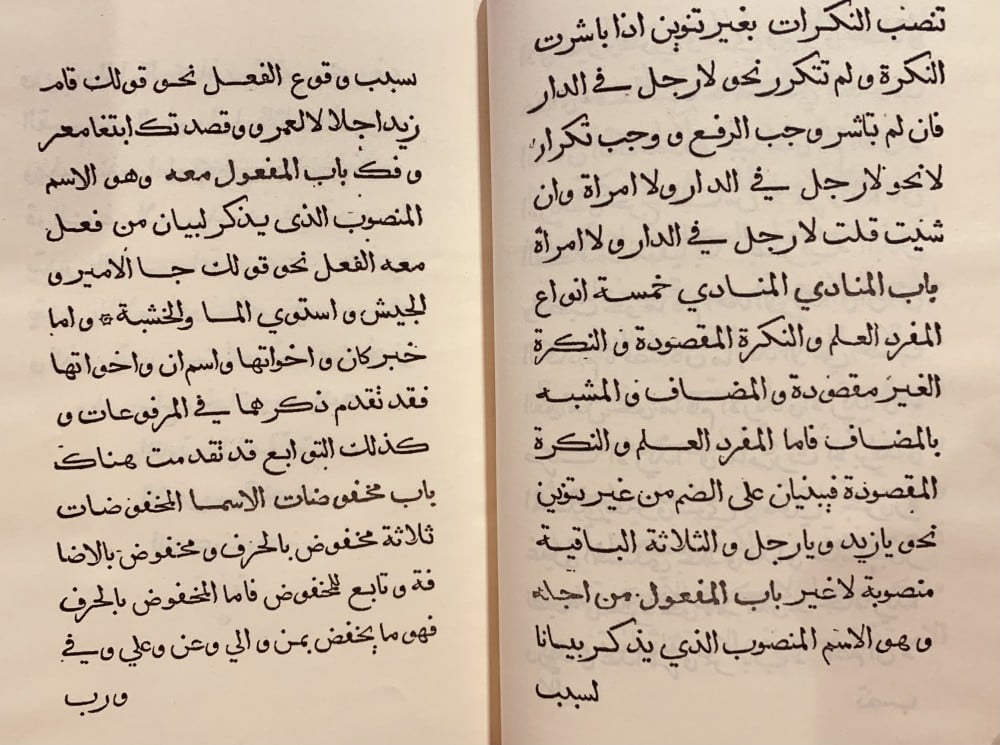 تنصب النكرات بغير تنوين اذا باشرت
النكرة و لم تتكرر نحو لا رجل في الدار
فان لم تباشر وجب الرفع و وجب تكرار
لا نحو لا رجل في الدار ولا امراة وان
شئت قلت لا رجل في الدار و لا امراة
باب المنادي المنادي خمسة انواع
المفرد العلم و النكرة المقصودة و النكرة
الغير مقصودة و المضاف و المشبه
بالمضاف فاما المفرد العلم و النكرة
المقصودة فيبنيان على الضم من غير تنوين
نحو يا زيد و يا رجل و الثلاثة الباقية
منصوبة لا غير باب المفعول من اجله
و هو الاسم المنصوب الذي يذكر بيانا
لسبب
سبب وقوع الفعل نحو قولك قام
زيد اجلا لا لعمرو و قصدتك ابتغا معر
وفك باب المفعول معه وهو الاسم
المنصوب الذى يذكر لبيان من فعل
معه الفعل نحو قولك جا الامير و
الجيش و استوي الما والخشبة و اما
خبر كان و اخواتها و اسم ان و اخواتها
فقد تقدم ذكرهما في المرفوعات و
كذلك التوابع قد تقدمت هناك
باب مخفوضات الاسما المخفوضات
ثلاثة مخفوض بالحرف و مخفوض بالاضا
فة و تابع للمخفوض فاما المخفوض بالحرف
فهو ما يخفض بمن و الي و عن و علي و في
ورب